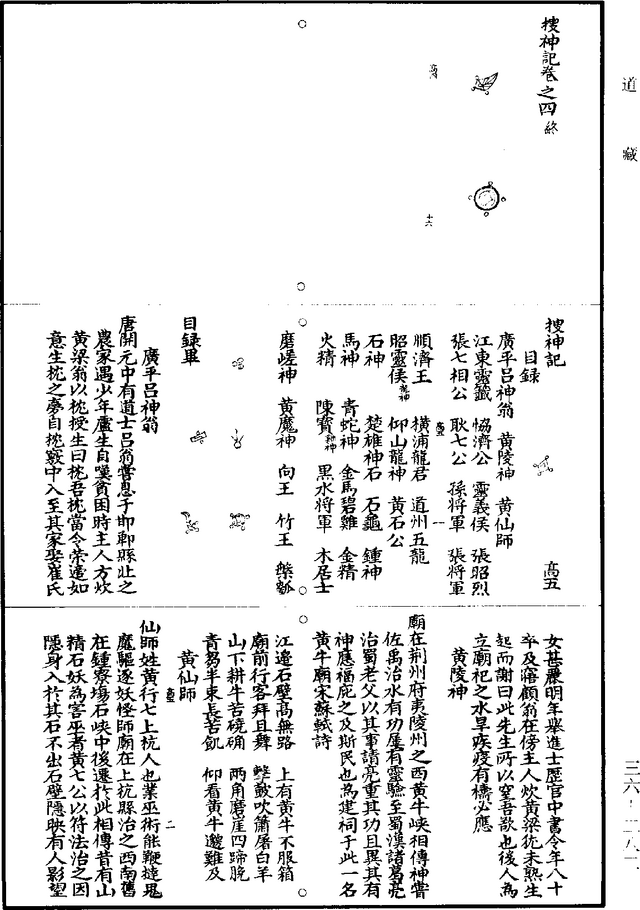 道藏
搜神記卷之四終
高四
十六
搜神記
高五
目録
廣平呂神翁　黄陵神　黄仙師
江東靈籤　恊濟公　靈義侯　張昭烈
張七相公　耿七公　孫將軍　張將軍
高五
一
順濟王　橫浦龍君　道州五龍
昭靈侯　仰山龍神　黄石公
石神　楚雄神石　石龜　鍾神
馬神　青蛇神　金馬碧雞　金精
火精　陳寶　黒水將軍　木居士
磨嵯神　黄魔神　向王　竹王　槃瓠
目録畢
廣平呂神翁
唐開元中有道士呂翁嘗息于邯鄲縣北之
農家遇少年盧生自嘆貧困時主人方炊
黄梁翁以枕授生曰枕吾枕當令榮遂如
意生枕之夢自枕竅中入至其家娶崔氏
女甚嚴明年舉進士歴官中書令年八十
卒及寤顧翁在傍主人炊黄梁犹未熟生
起而謝曰此先生所以窒吾欲也後人為
立廟祀之水旱疾疫有禱必應
黄陵神
廟在荆州府夷陵州之西黄牛峡相傳神嘗
佐禹治水有功屢有靈驗至蜀漢諸葛亮
治蜀老父以其事請亮重其功且異其有
神應福庇之及斯民也為建祠于此一名
黄牛廟宋蘇軾詩
江邊石壁高無路　上有黄牛不服箱
廟前行客拜且舞　擊鼓吹簫屠白羊
山下耕牛苦磽确　兩角磨崖四蹄脱
青芻半束長苦飢　仰看黄牛邈難及
黄仙師
高五
二
仙師姓黄行七上杭人也業巫術能鞭撻鬼
魔驅逐妖怪師廟在上抗縣治之西南舊
在鍾寮場石峡中後遷扵此相傳昔有山
精石妖為害巫者黄七公以符法治之因
隱身入扵其石不出石壁隱映有人影望
三六